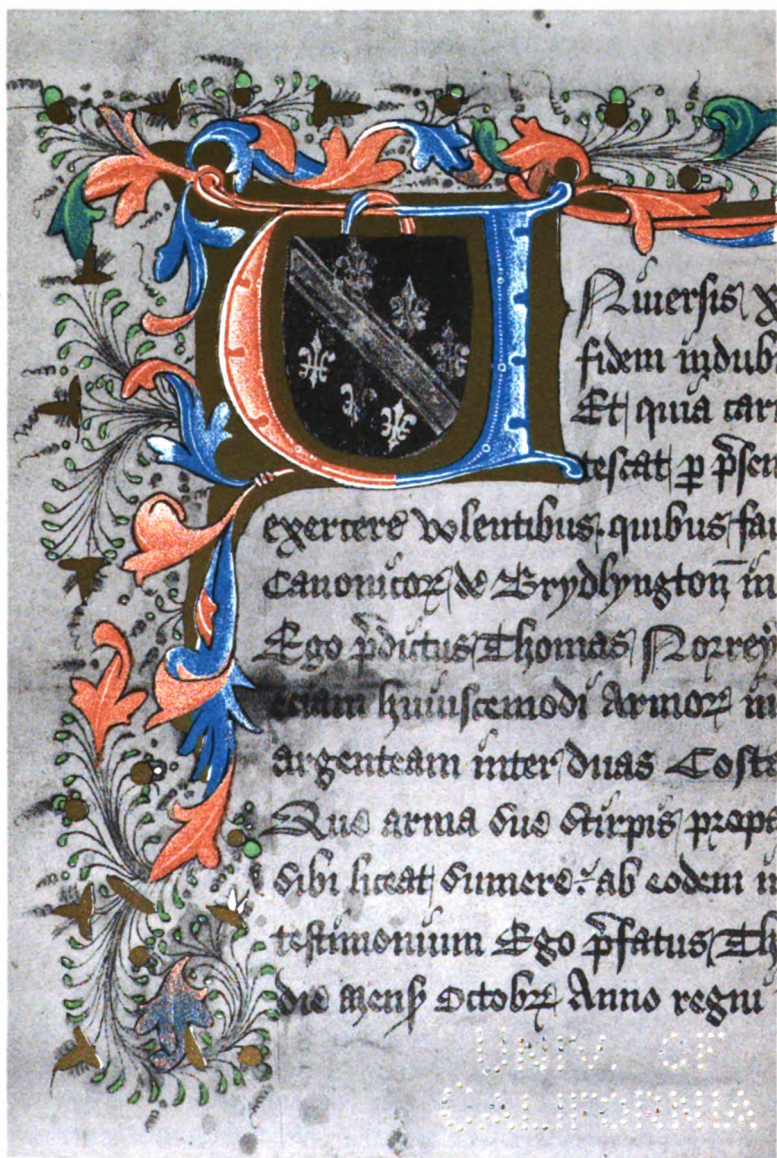 UNiuersis x
fidem indub
Et quia car
tescat p p̄sen
exercere volentibus quibus fa
Canonicoꝝ de Brydlyngton̄ in
Ego p̄dictus Thomas Norrey
eciam huiuscemodi armoꝝ in
argenteam inter duas Costa
Que arma sue stirpis prepa
sibi liceat sumere ab eodem in
testimonium Ego p̄fatus Th
die mens Octobꝝ Anno regni
UNIV. OF
CALIFORNIA